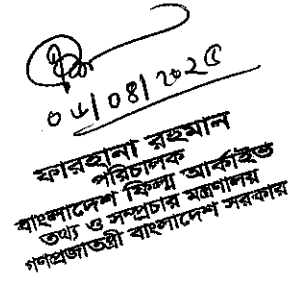 ০৮/০৪/২০২৫
ফারহানা রহমান
পরিচালক
বাংলাদেশ ফিল্ম আর্কাইভ
তথ্য ও সম্প্রচার মন্ত্রণালয়
গণপ্রজাতন্ত্রী বাংলাদেশ সরকার